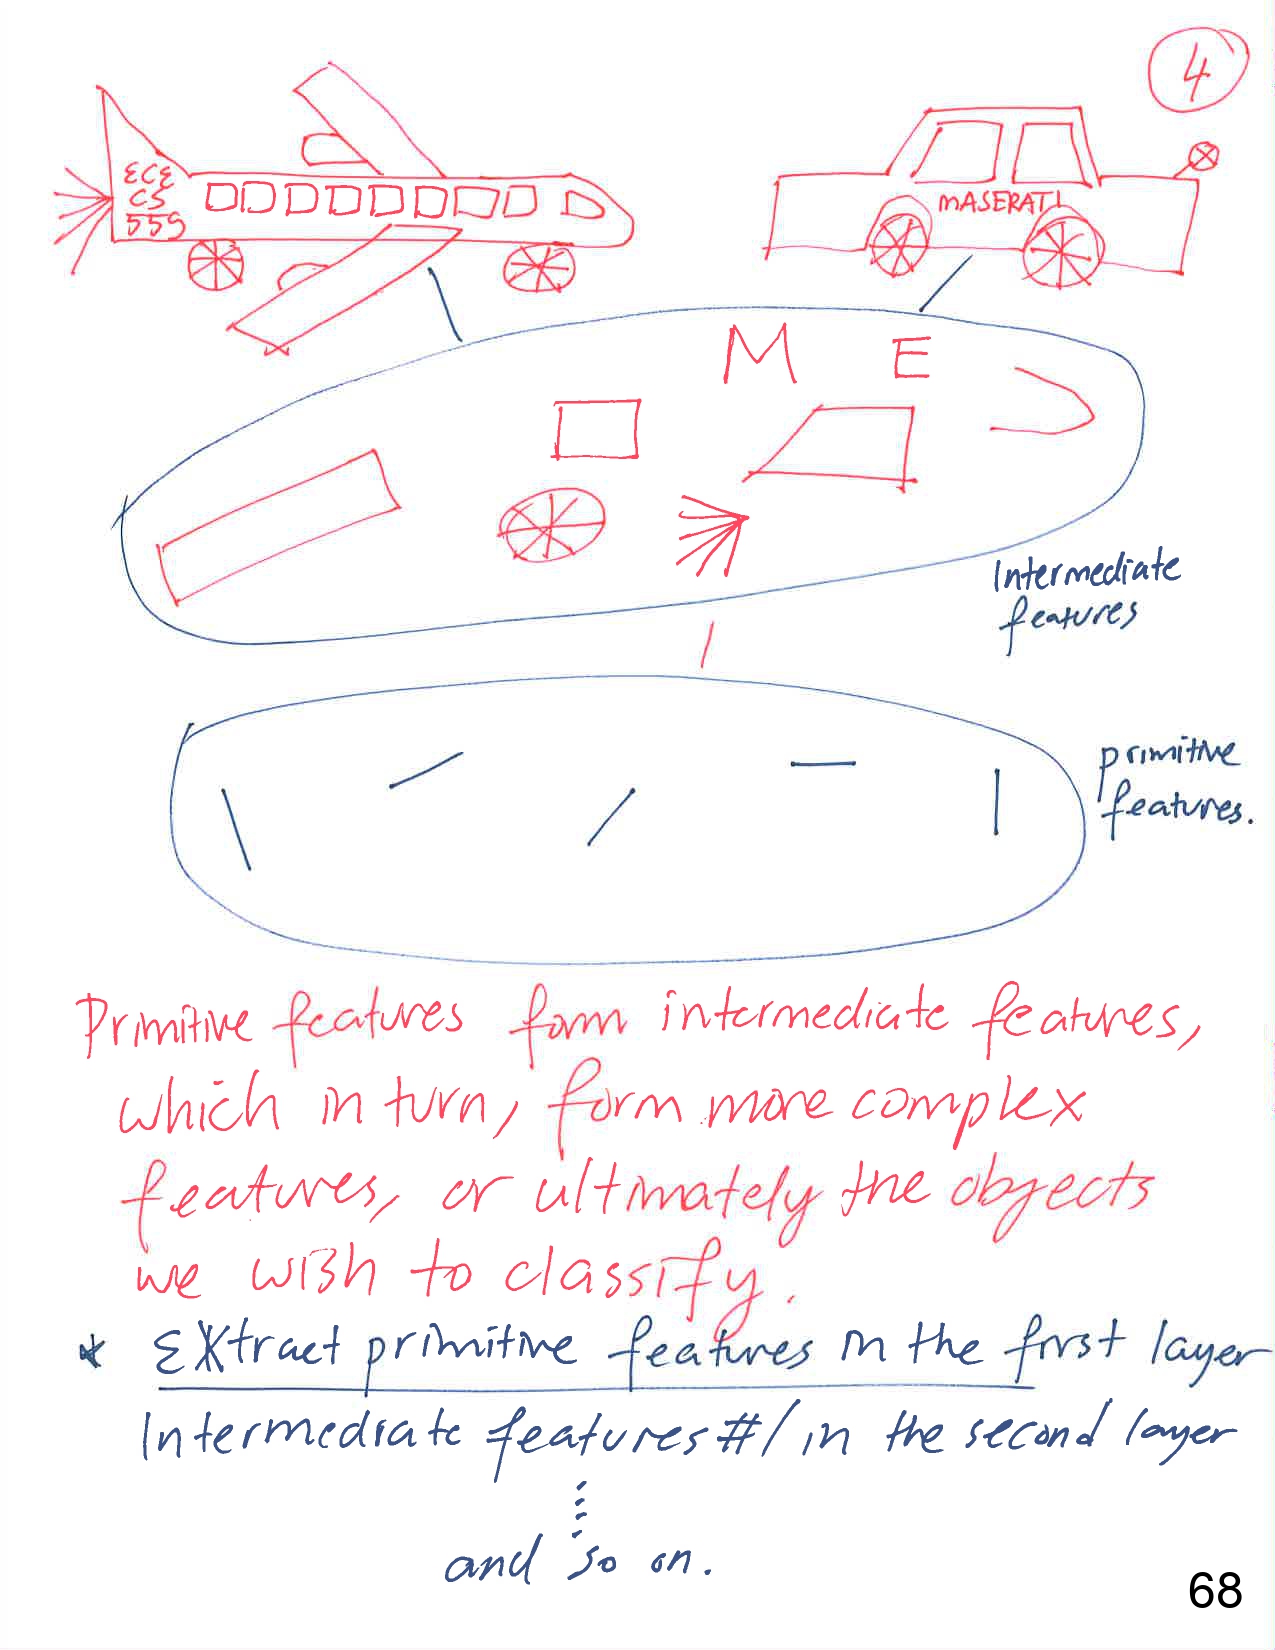 4
ECE
CS
555
MASERATI
M E
Intermediate
features
primitive
features.
Primitive features form intermediate features,
which in turn, form more complex
features, or ultimately the objects
we wish to classify.
* Extract primitive features in the first layer
Intermediate features #1 in the second layer
and so on.
68